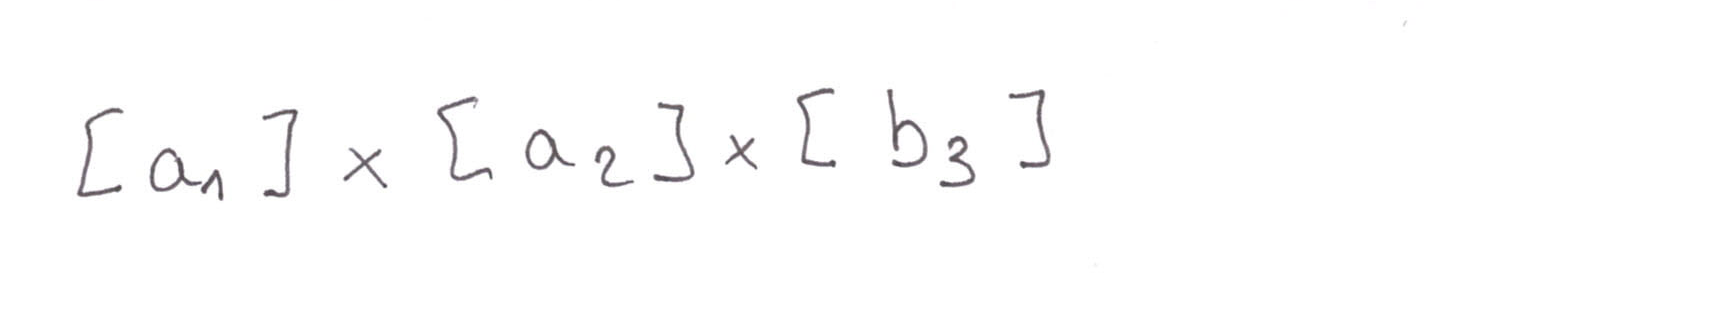 [a₁] × [a₂] × [b₃]